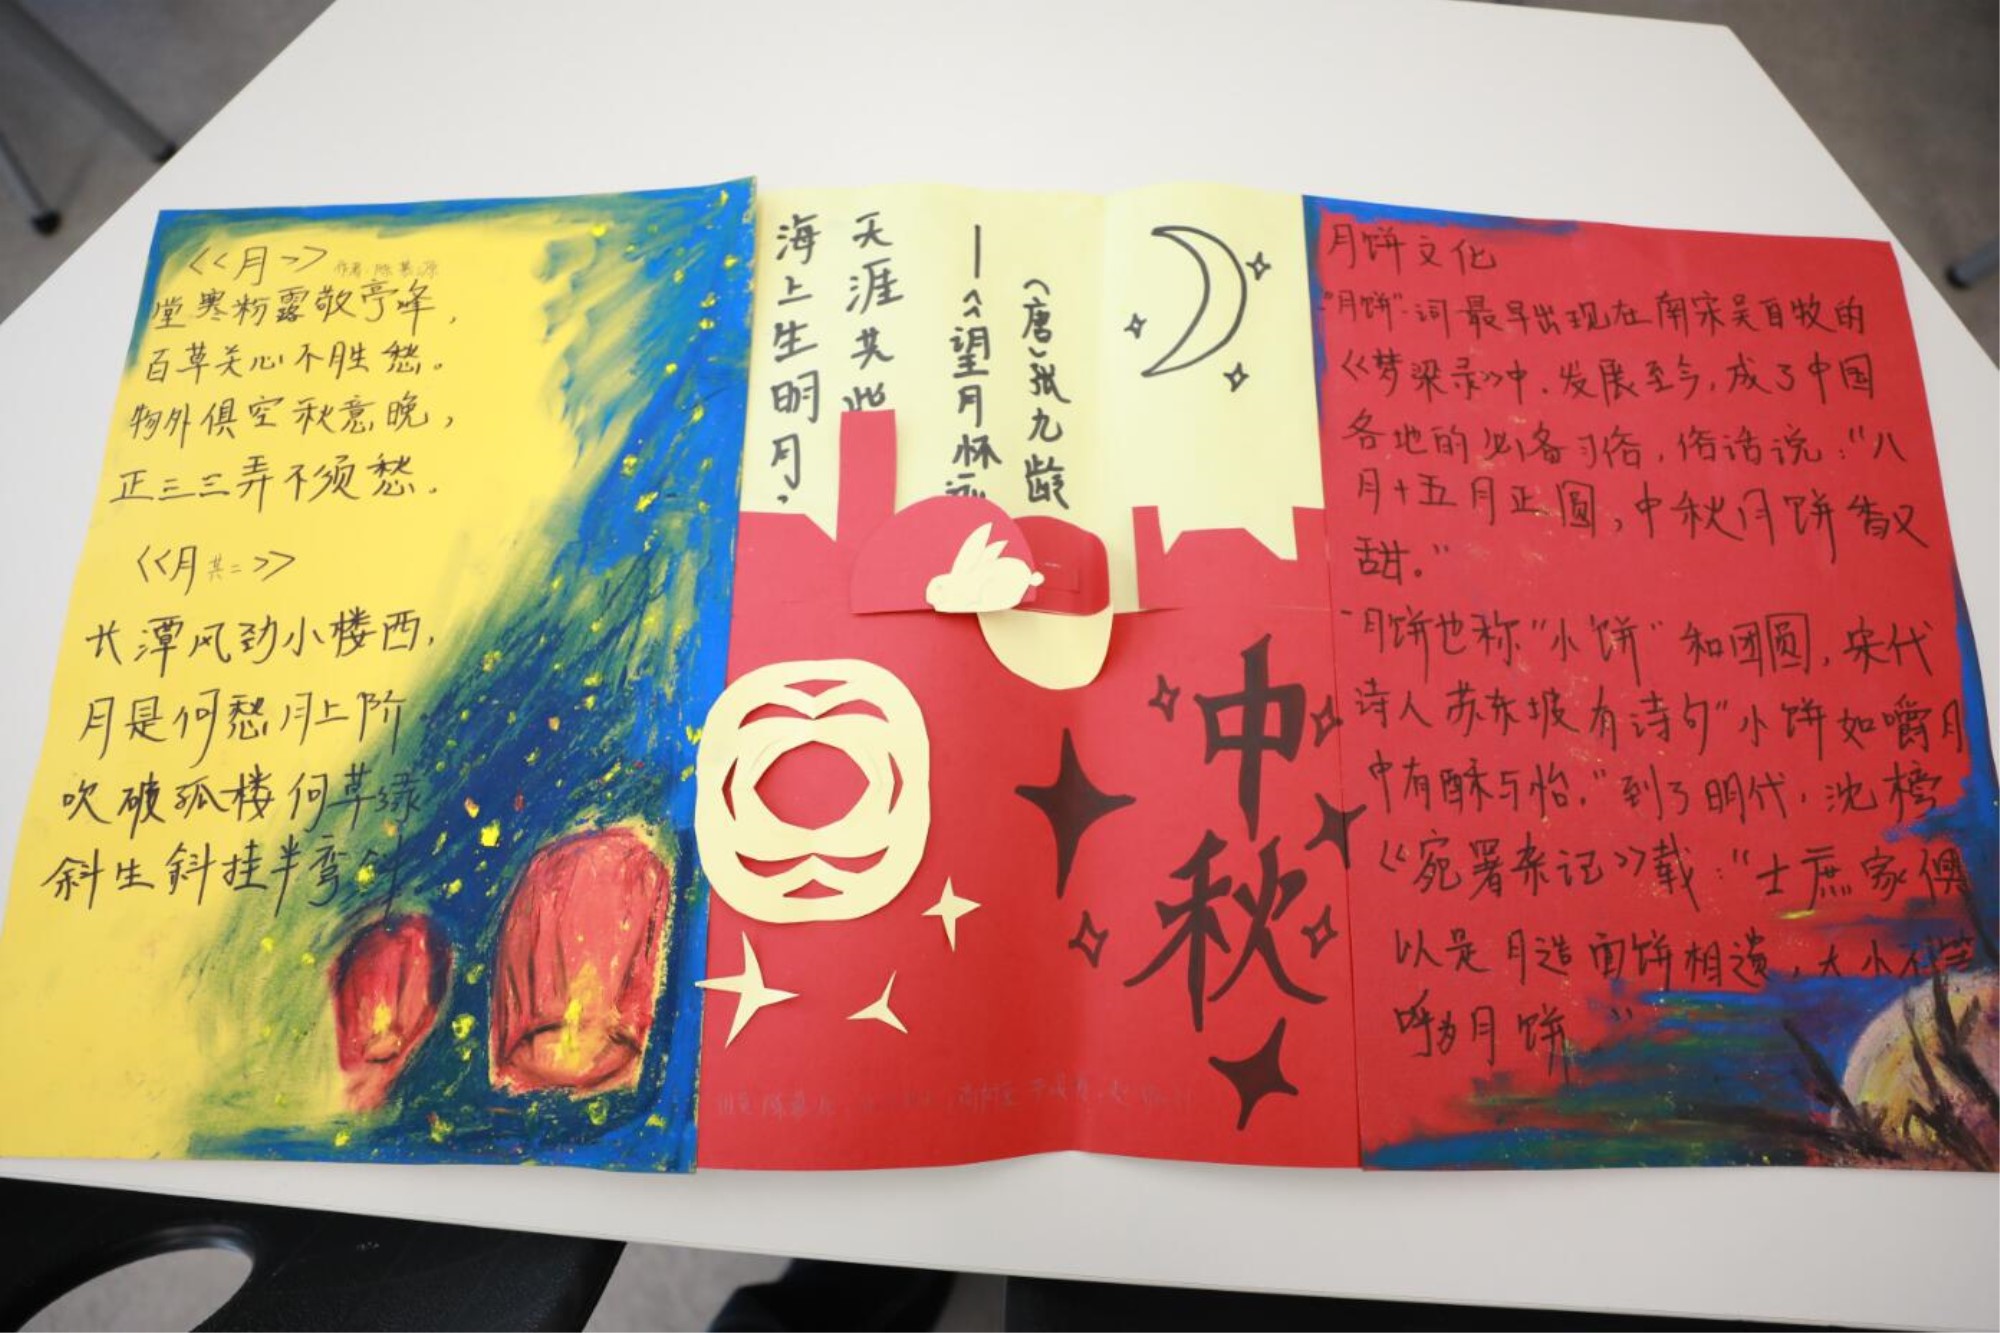 《月》 作者：陈慕源
堂寒粉露敬亭峰，
百草关心不胜愁。
物外俱空秋意晚，
正三三弄不须愁。
《月其二》
长潭风劲小楼西，
月是何愁月上阶
吹破孤楼何草绿
斜生斜挂半弯斜
海上生明月，
天涯共此
—《望月怀远
（唐）张九龄
中秋
月饼文化
"月饼"一词最早出现在南宋吴自牧的
《梦梁录》中．发展至今，成了中国
各地的必备习俗，俗话说："八
月十五月正圆，中秋月饼香又
甜。"
月饼也称"小饼"和团圆，宋代
诗人苏东坡有诗句"小饼如嚼月
中有酥与怡．"到了明代，沈榜
《宛署杂记》载："士庶家俱
以是月造面饼相遗，大小不等
呼为月饼"